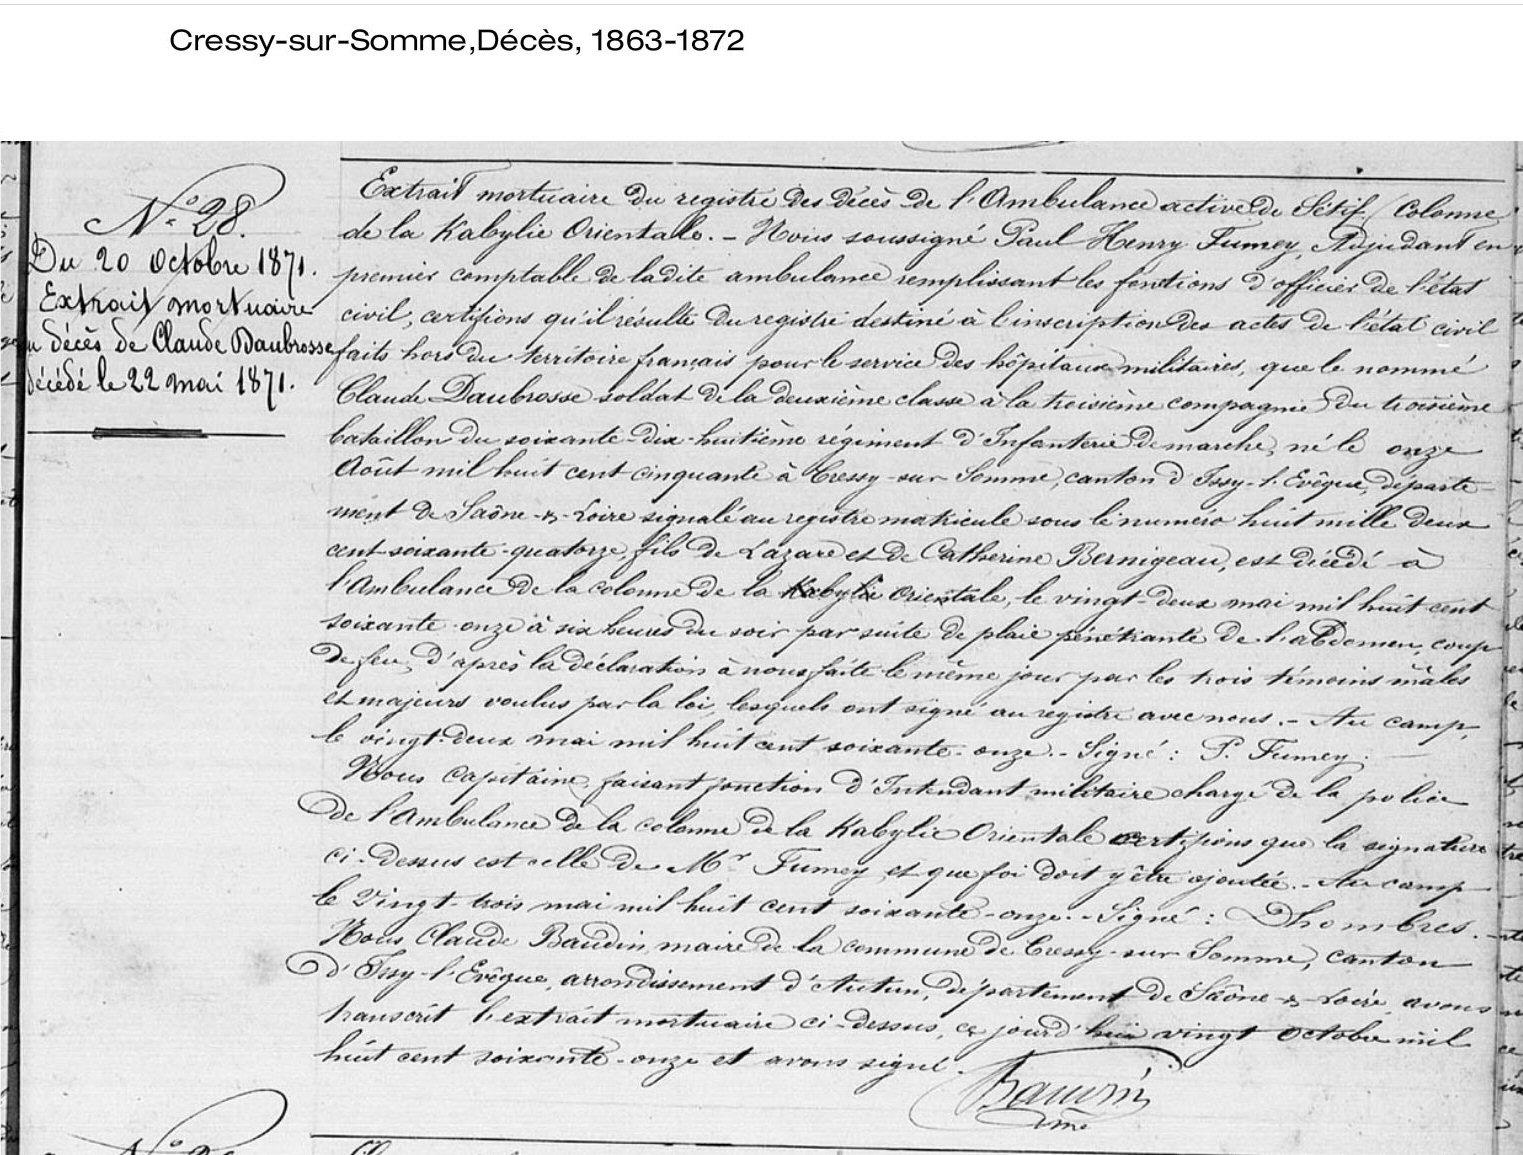 Cressy-sur-Somme,Décès, 1863-1872
N.° 28.
Du 20 Octobre 1871.
Extrait mortuaire
du décès de Claude Daubrosse
décédé le 22 mai 1871.
Extrait mortuaire du registre des décès de l'Ambulance active de Sétif (Colonne
de la Kabylie Orientale. - Nous soussigné Paul Henry Fumey, Adjudant en
premier comptable de ladite ambulance remplissant les fonctions d'officier de l'état
civil, certifions qu'il résulte du registre destiné à l'inscription des actes de l'état civil
faits hors du territoire français pour le service des hôpitaux militaires, que le nommé
Claude Daubrosse soldat de la deuxième classe à la troisième compagnie du troisième
bataillon du soixante-dix-huitième régiment d'Infanterie de marche, né le onze
Août mil huit cent cinquante à Cressy-sur-Somme, canton d'Issy-l'Evêque, départe-
ment de Saône-&-Loire signalé au registre matricule sous le numéro huit mille deux
cent soixante-quatorze, fils de Lazare et de Catherine Bernigeau, est décédé à
l'Ambulance de la colonne de la Kabylie Orientale, le vingt-deux mai mil huit cent
soixante-onze à six heures du soir par suite de plaie pénétrante de l'abdomen, coup
de feu, d'après la déclaration à nous faite le même jour par les trois témoins mâles
et majeurs voulus par la loi, lesquels ont signé au registre avec nous. - Au camp,
le vingt-deux mai mil huit cent soixante-onze. - Signé : P. Fumey.
Nous Capitaine, faisant fonction d'Intendant militaire chargé de la police
de l'Ambulance de la colonne de la Kabylie Orientale certifions que la signature
ci-dessus est celle de Mr Fumey et que foi doit y être ajoutée. - Au camp
le Vingt-trois mai mil huit cent soixante-onze. - Signé : Dhombres.
Nous Claude Baudin, maire de la commune de Cressy-sur-Somme, canton
d'Issy-l'Evêque, arrondissement d'Autun, département de Saône-&-Loire, avons
transcrit l'extrait mortuaire ci-dessus, ce jourd'hui vingt Octobre mil
huit cent soixante-onze et avons signé.
Baudin
N°